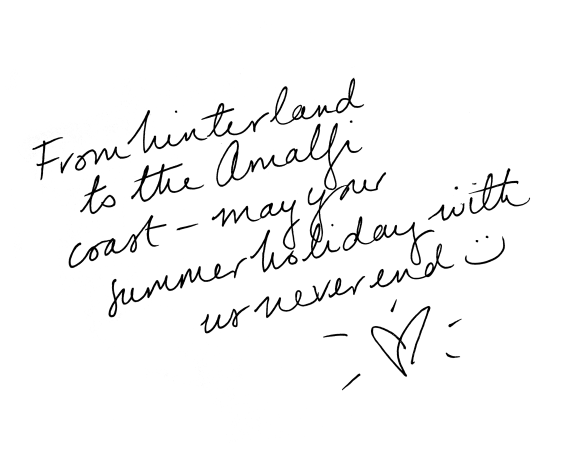 From hinterland
to the Amalfi
coast – may your
summer holiday with
us never end :)